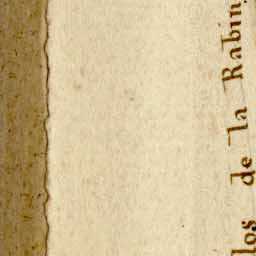 los de la Rabin